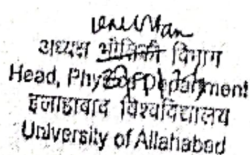 अध्यक्ष भौतिकी विभाग
Head, Physics Department
इलाहाबाद विश्वविद्यालय
University of Allahabad